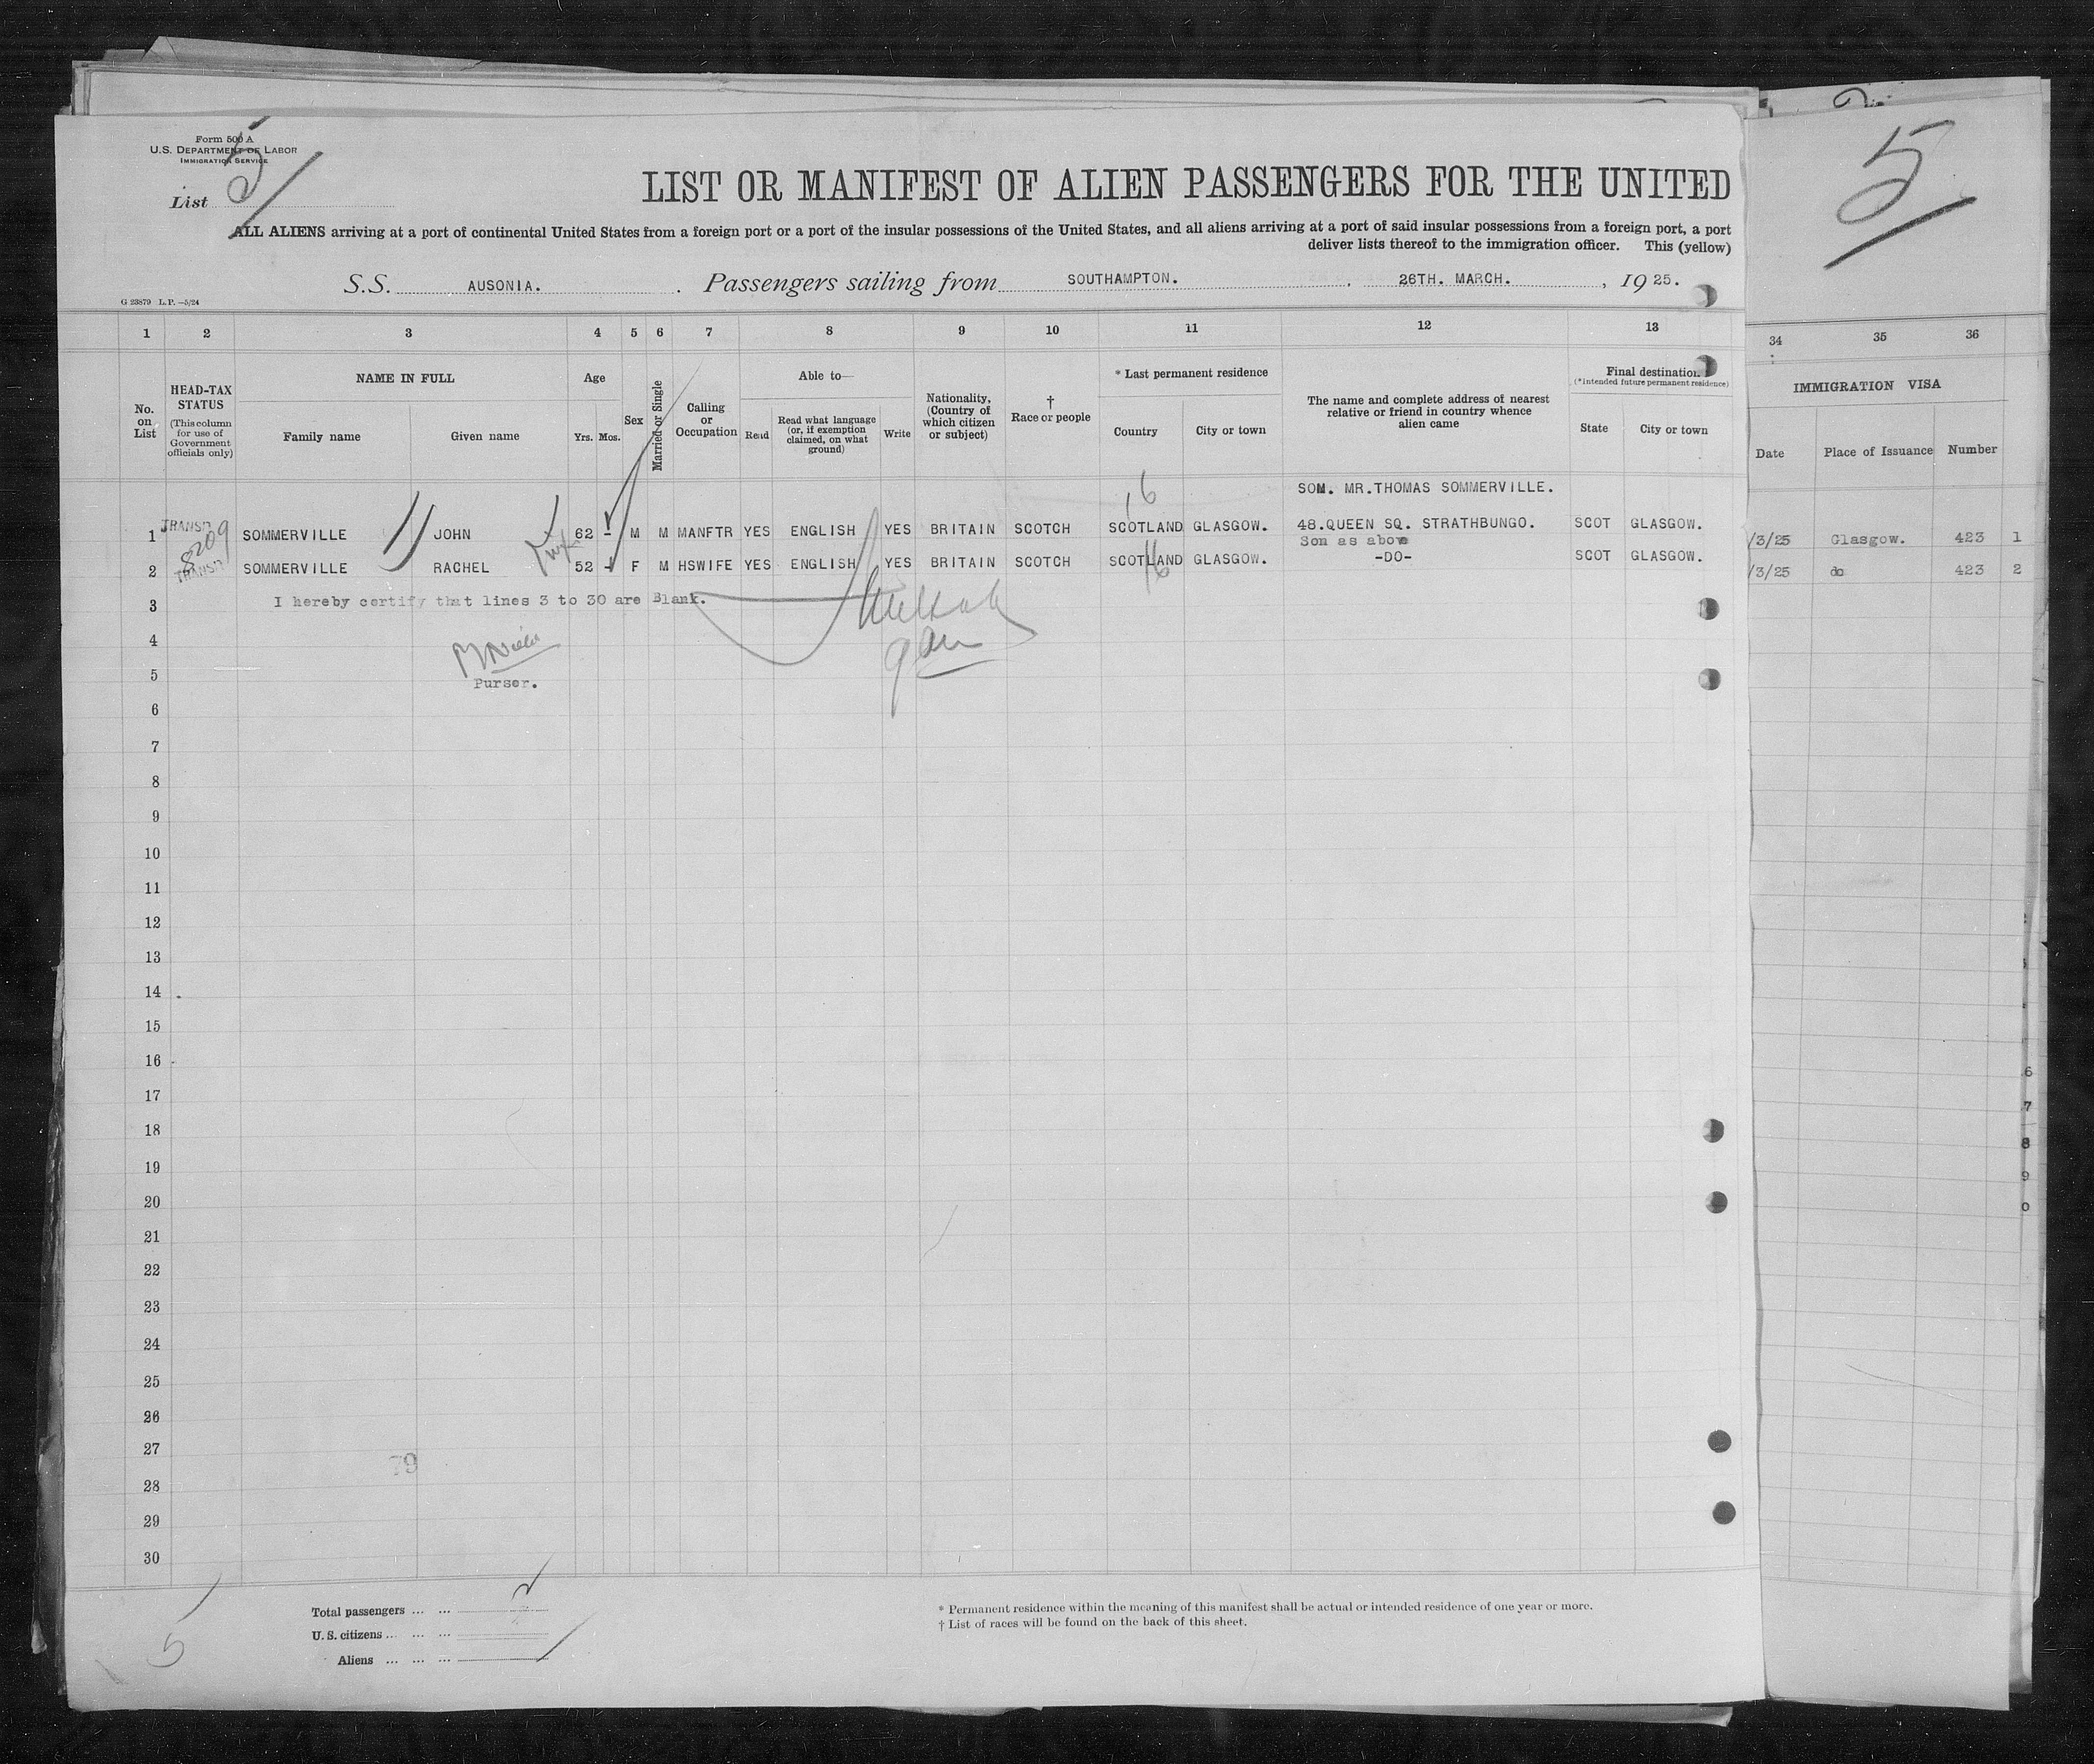 Form 500 A
U.S. DEPARTMENT OF LABOR
IMMIGRATION SERVICE
List 5
5
LIST OR MANIFEST OF ALIEN PASSENGERS FOR THE UNITED
ALL ALIENS arriving at a port of continental United States from a foreign port or a port of the insular possessions of the United States, and all aliens arriving at a port of said insular possessions from a foreign port, a port
deliver lists thereof to the immigration officer. This (yellow)
S.S. AUSONIA. Passengers sailing from SOUTHAMPTON. , 26TH. MARCH. , 1925.
G 23879 L.P.—5/24
1 2 3 4 5 6 7 8 9 10 11 12 13 34 35 36
No. on List
HEAD-TAX STATUS
(This column for use of Government officials only)
NAME IN FULL
Family name
Given name
Age
Yrs. Mos.
Sex
Married or Single
Calling or Occupation
Able to—
Read
Read what language (or, if exemption claimed, on what ground)
Write
Nationality, (Country of which citizen or subject)
† Race or people
* Last permanent residence
Country
City or town
The name and complete address of nearest relative or friend in country whence alien came
Final destination
(*intended future permanent residence)
State
City or town
IMMIGRATION VISA
Date
Place of Issuance
Number
16 SON. MR.THOMAS SOMMERVILLE.
1 TRANSIT 8209 SOMMERVILLE JOHN 62 - M M MANFTR YES ENGLISH YES BRITAIN SCOTCH SCOTLAND GLASGOW. 48.QUEEN SQ. STRATHBUNGO. SCOT GLASGOW. /3/25 Glasgow. 423 1
Son as above
2 TRANSIT SOMMERVILLE RACHEL wife 52 - F M HSWIFE YES ENGLISH YES BRITAIN SCOTCH SCOTLAND 16 GLASGOW. -DO- SCOT GLASGOW. /3/25 do 423 2
3 I hereby certify that lines 3 to 30 are Blank.
4
5 Purser.
6
7
8
9
10
11
12
13
14
15
16
17
18
19
20
21
22
23
24
25
26
27
79
28
29
30
6
7
8
9
0
Total passengers ... ... 2
U.S. citizens ... ... ...
Aliens ... ... ...
5
* Permanent residence within the meaning of this manifest shall be actual or intended residence of one year or more.
† List of races will be found on the back of this sheet.